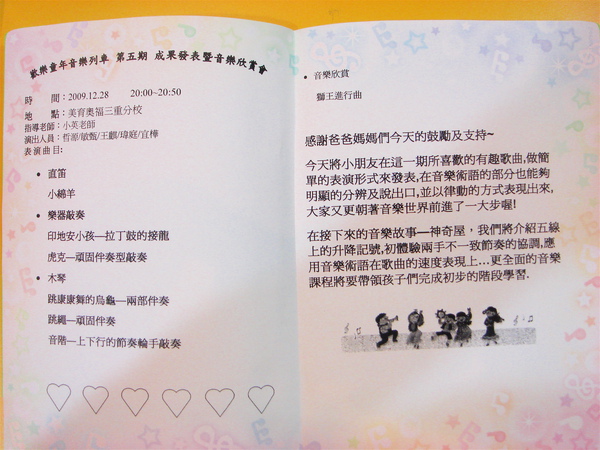 歡樂童年音樂列車 第五期 成果發表暨音樂欣賞會
時　　間：2009.12.28　　20:00~20:50
地　　點：美育奧福三重分校
指導老師：小英老師
演出人員：哲源/敏甄/王麒/瑋庭/宜樺
表演曲目:
• 直笛
小綿羊
• 樂器敲奏
印地安小孩—拉丁鼓的接龍
虎克—頑固伴奏型敲奏
• 木琴
跳康康舞的烏龜—兩部伴奏
跳繩—頑固伴奏
音階—上下行的節奏輪手敲奏
• 音樂欣賞
獅王進行曲
感謝爸爸媽媽們今天的鼓勵及支持~
今天將小朋友在這一期所喜歡的有趣歌曲,做簡
單的表演形式來發表,在音樂術語的部分也能夠
明顯的分辨及說出口,並以律動的方式表現出來,
大家又更朝著音樂世界前進了一大步喔!
在接下來的音樂故事—神奇屋，我們將介紹五線
上的升降記號,初體驗兩手不一致節奏的協調,應
用音樂術語在歌曲的速度表現上...更全面的音樂
課程將要帶領孩子們完成初步的階段學習.